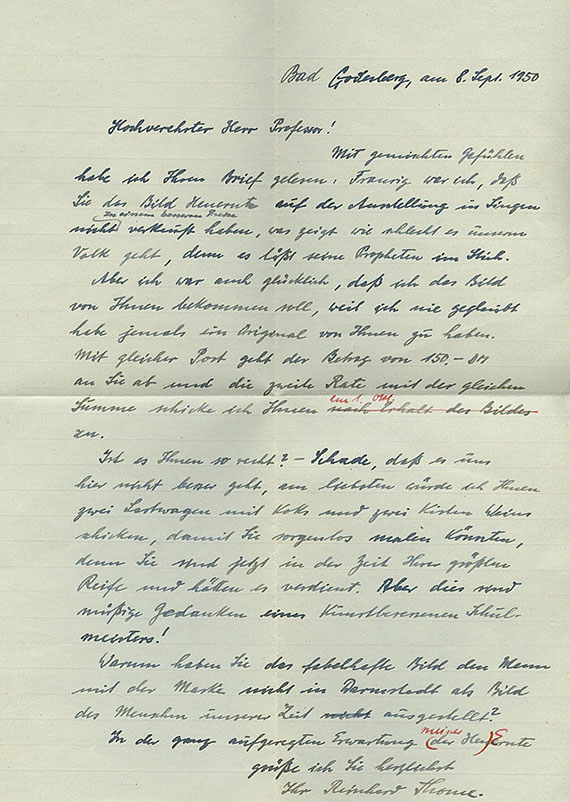 Bad Godesberg, am 8. Sept. 1950
Hochverehrter Herr Professor!
Mit gemischten Gefühlen
habe ich Ihren Brief gelesen: Traurig war ich, daß
Sie das Bild Heuernte auf der Ausstellung in Singen
zu einem besseren Preise
nicht verkauft haben, was zeigt wie schlecht es unserm
Volk geht, denn es läßt seine Propheten im Stich.
Aber ich war auch glücklich, daß ich das Bild
von Ihnen bekommen soll, weil ich nie geglaubt
habe jemals ein Original von Ihnen zu haben.
Mit gleicher Post geht der Betrag von 150.- DM
an Sie ab und die zweite Rate mit der gleichen
am 1. Okt.
Summe schicke ich Ihnen nach Erhalt des Bildes
zu.
Ist es Ihnen so recht? - Schade, daß es uns
hier nicht besser geht, am liebsten würde ich Ihnen
zwei Lastwagen mit Koks und zwei Kisten Weins
schicken, damit Sie sorgenlos malen könnten,
denn Sie sind jetzt in der Zeit Ihrer größten
Reife und hätten es verdient. Aber dies sind
müßige Gedanken eines kunstbesessenen Schul-
meisters!
Warum haben Sie das fabelhafte Bild den Mann
mit der Maske nicht in Darmstadt als Bild
des Menschen unserer Zeit nicht ausgestellt?
meiner
In der ganz aufgeregten Erwartung (der Heu)Ernte
grüße ich Sie herzlichst
Ihr Reinhard Thome.